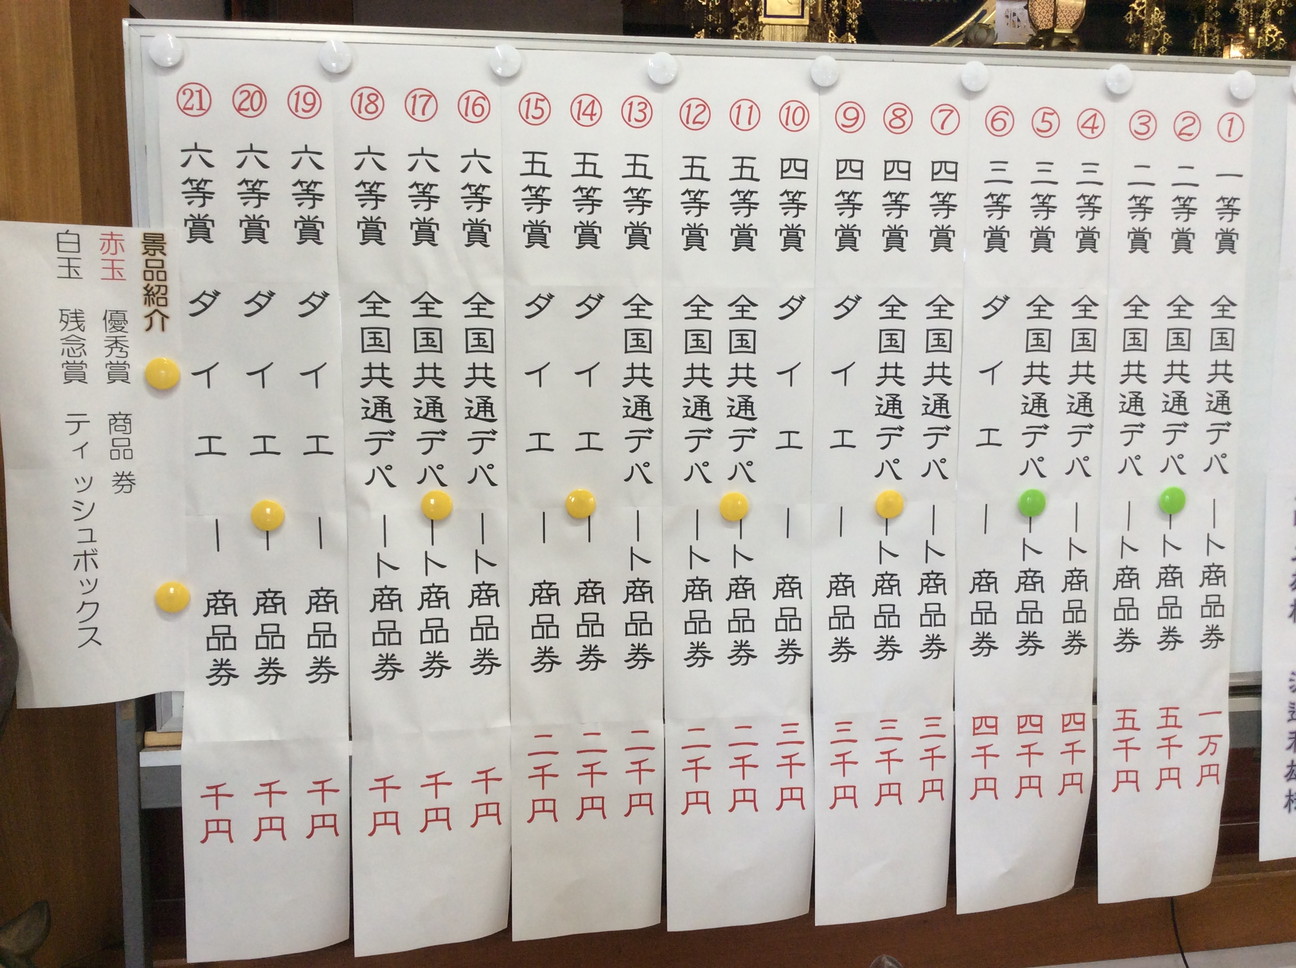 ① 一等賞 全国共通デパート商品券 一万円
② 二等賞 全国共通デパート商品券 五千円
③ 二等賞 全国共通デパート商品券 五千円
④ 三等賞 全国共通デパート商品券 四千円
⑤ 三等賞 全国共通デパート商品券 四千円
⑥ 三等賞 ダイエー商品券 四千円
⑦ 四等賞 全国共通デパート商品券 三千円
⑧ 四等賞 全国共通デパート商品券 三千円
⑨ 四等賞 ダイエー商品券 三千円
⑩ 四等賞 ダイエー商品券 三千円
⑪ 五等賞 全国共通デパート商品券 二千円
⑫ 五等賞 全国共通デパート商品券 二千円
⑬ 五等賞 全国共通デパート商品券 二千円
⑭ 五等賞 ダイエー商品券 二千円
⑮ 五等賞 ダイエー商品券 二千円
⑯ 六等賞 全国共通デパート商品券 千円
⑰ 六等賞 全国共通デパート商品券 千円
⑱ 六等賞 全国共通デパート商品券 千円
⑲ 六等賞 ダイエー商品券 千円
⑳ 六等賞 ダイエー商品券 千円
㉑ 六等賞 ダイエー商品券 千円
景品紹介
赤玉 優秀賞 商品券
白玉 残念賞 ティッシュボックス